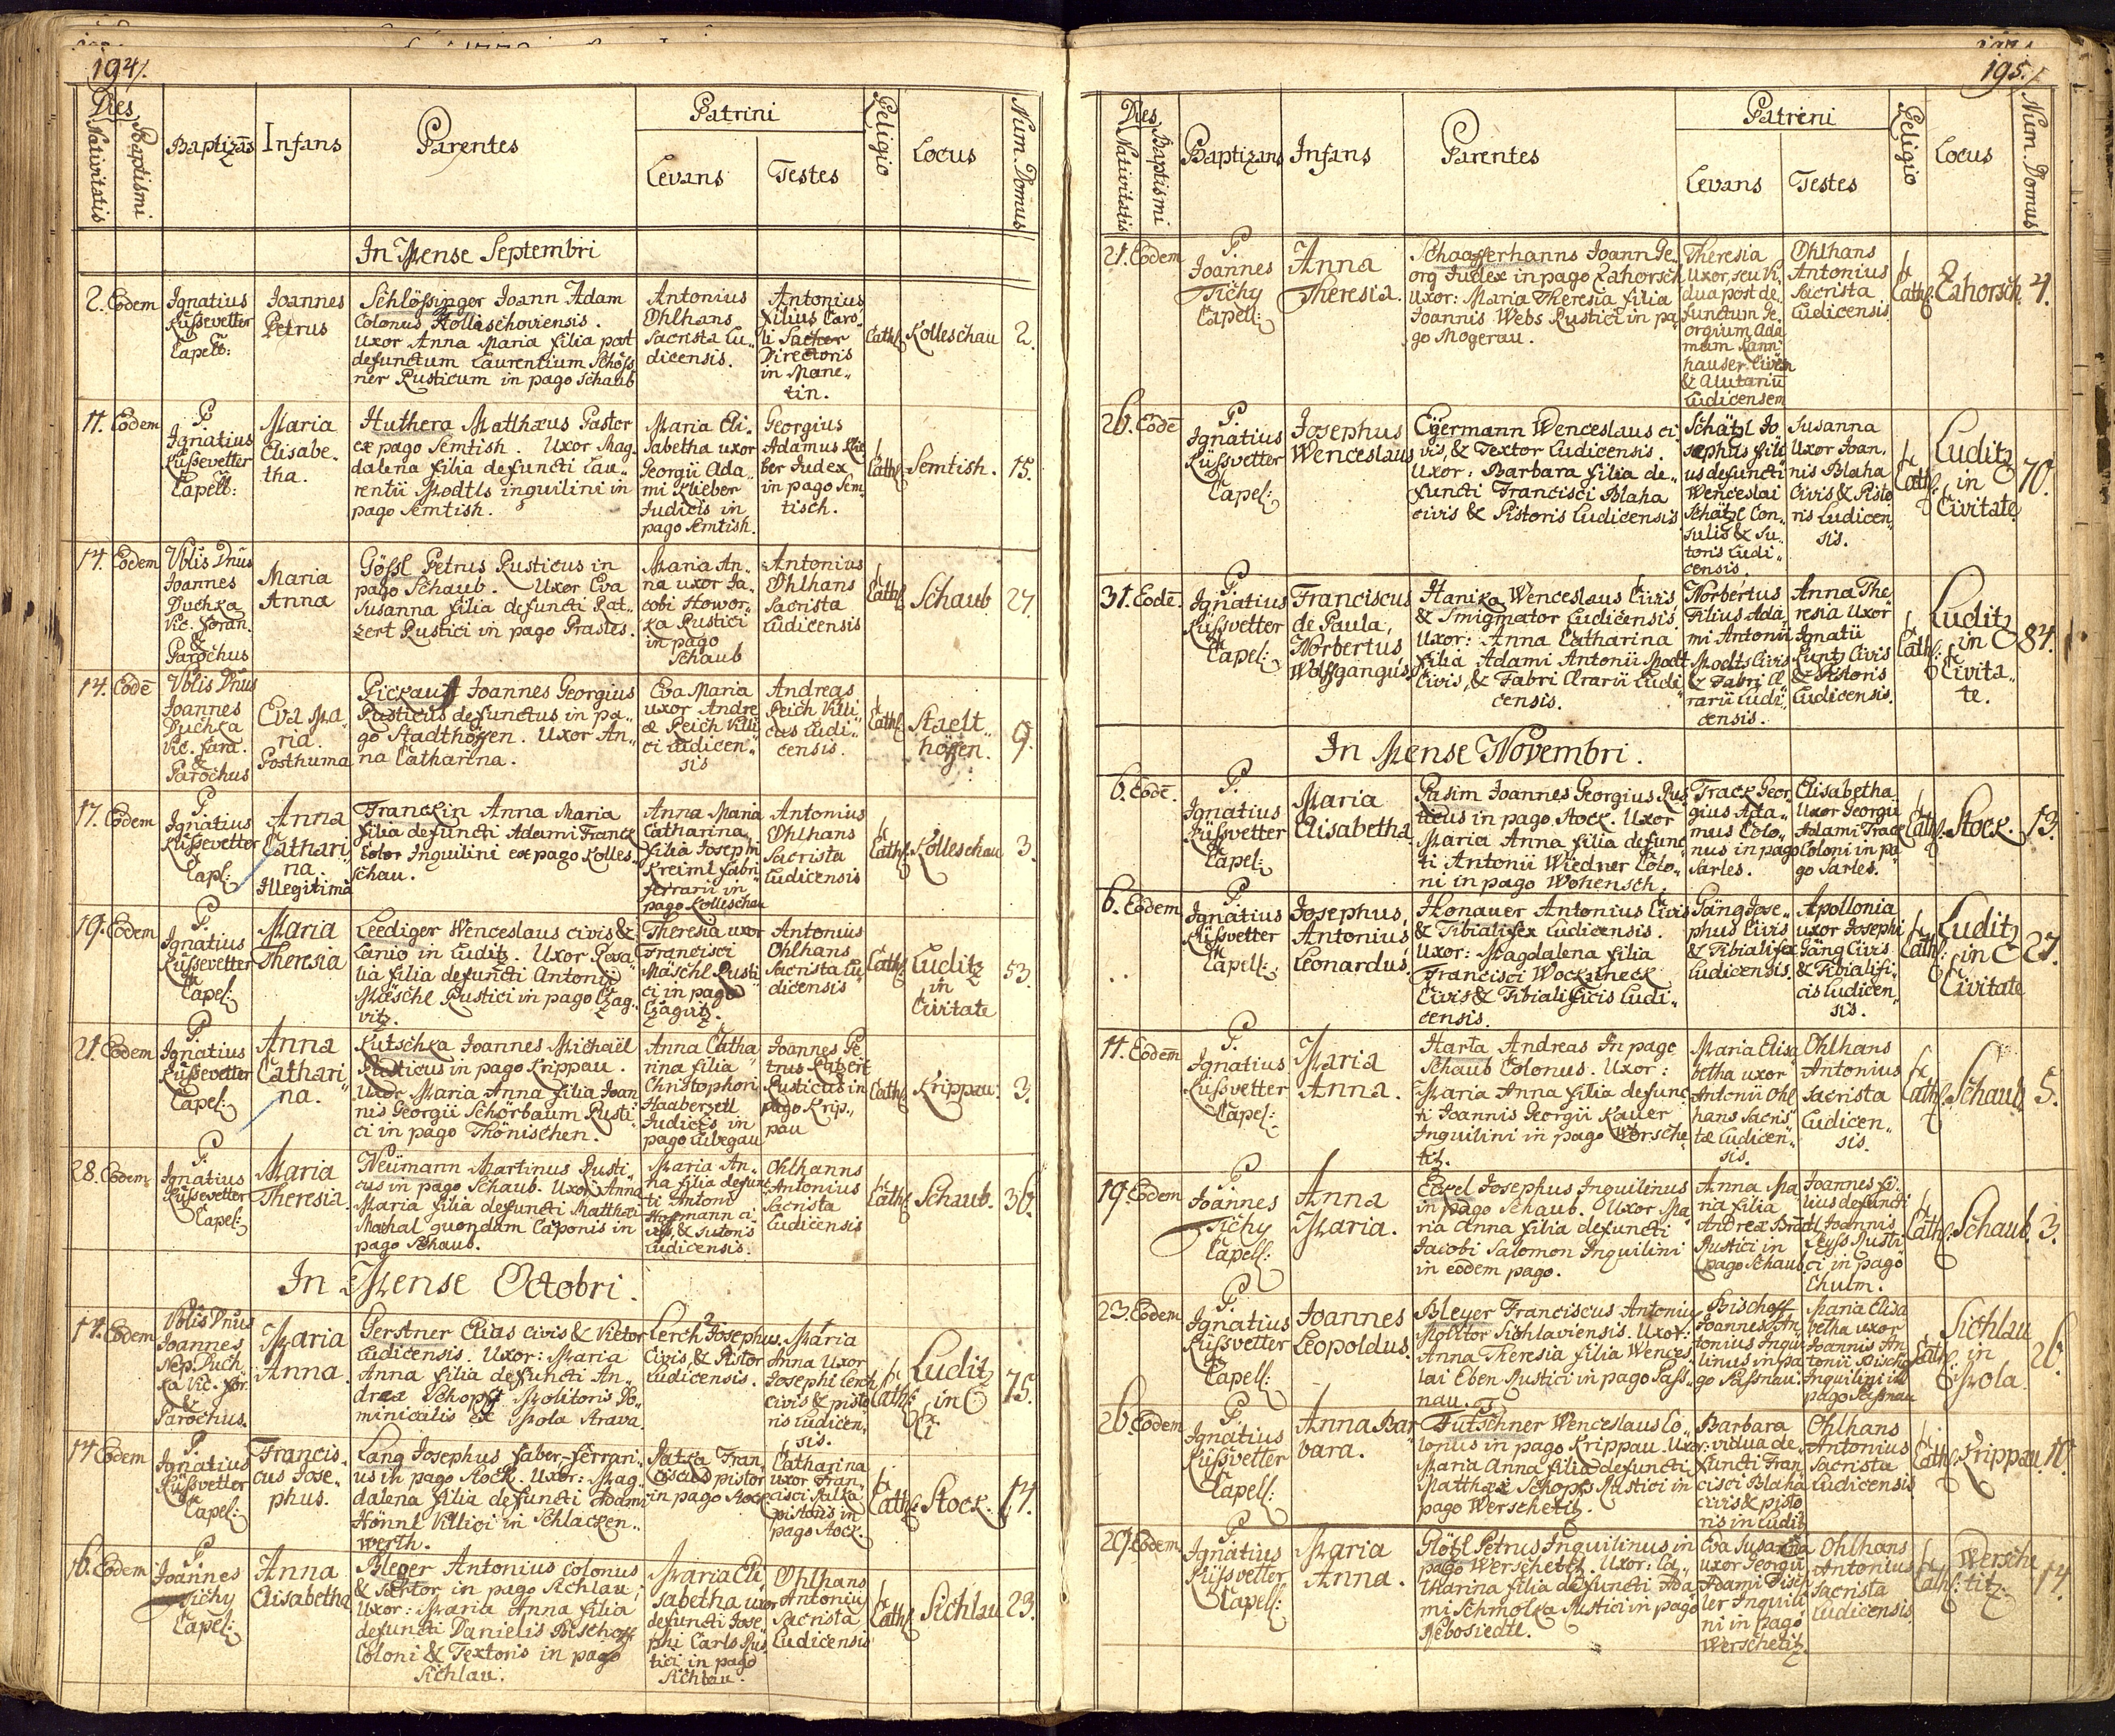 194.
Dies
Nativitatis
Baptismi
Baptizans
Infans
Parentes
Patrini
Levans
Testes
Religio
Locus
Num. Domus
In Mense Septembri
2. Eodem
Ignatius
Küssevetter
Capell:
Joannes
Petrus
Schlössinger Joann Adam
Colonus Kolleschoviensis.
Uxor Anna Maria filia post
defunctum Laurentium Schöss
ner Rusticum in pago Schaub
Antonius
Ohlhans
Sacrista Lu„
dicensis.
Antonius
Filius Caro„
li Sacher
Directoris
in Mane„
tin.
Cath:
Kolleschau
2.
11. Eodem
P.
Ignatius
Küssevetter
Capell:
Maria
Elisabe„
tha.
Huthera Matthæus Pastor
ex pago Semtish. Uxor Mag„
dalena filia defuncti Lau„
rentii Modtls inquilini in
pago Semtish.
Maria Eli„
sabetha uxor
Georgii Ada„
mi Klieber
Judicis in
pago Semtish.
Georgius
Adamus Klie
ber Judex
in pago Sem„
tisch.
Cath:
Semtish.
15.
14. Eodem
Vblis Dnus
Joannes
Duchka
Vic. foran.
&
Parochus
Maria
Anna
Gössl Petrus Rusticus in
pago Schaub. Uxor Eva
Susanna filia defuncti Pat„
zert Rustici in pago Prasles.
Maria An„
na uxor Ja„
cobi Howor„
ka Rustici
in pago
Schaub
Antonius
Ohlhans
Sacrista
Ludicensis
Cath:
Schaub
27.
14. Eodē
Vblis Dnus
Joannes
Duchka
Vic. fora.
&
Parochus
Eva Ma„
ria.
Posthuma
Joannes Georgius
Rusticus defunctus in pa„
go Stadthöffen. Uxor An„
na Catharina.
Eva Maria
uxor Andre
æ Reich Villi
ci Ludicen„
sis
Andreas
Reich Villi„
cus Ludi„
censis.
Cath:
Stadt„
höffen.
9.
17. Eodem
P.
Ignatius
Küssevetter
Capl:
Anna
Cathari„
na.
Illegitima
Franckin Anna Maria
filia defuncti Adami Franck
Inquilini ex pago Kolles„
schau.
Anna Maria
Catharina
filia Josephi
Kreiml fabri
ferrarii in
pago Kolleschau
Antonius
Ohlhans
Sacrista
Ludicensis
Cath:
Kolleschau
3.
19. Eodem
P.
Ignatius
Küssevetter
Capel:
Maria
Theresia
Leediger Wenceslaus civis &
Lanio in Luditz. Uxor Rosa„
lia filia defuncti Antonii
Mäschl Rustici in pago Czag„
vitz.
Theresia uxor
Francisci
Mäschl Rusti
ci in pago
Czagvitz.
Antonius
Ohlhans
Sacrista Lu„
dicensis
Cath:
Luditz
in
Civitate
53.
21. Eodem
P.
Ignatius
Küssevetter
Capel:
Anna
Cathari„
na.
Kutschka Joannes Michaël
Rusticus in pago Krippau.
Uxor Maria Anna filia Joan
nis Georgii Schörbaum Rusti„
ci in pago Thönischen.
Anna Catha
rina filia
Christophori
Haaberzetl
Judicis in
pago Lubegau
Joannes Pe
trus
Rusticus in
pago Krip„
pau
Cath:
Krippau.
3.
28. Eodem
P.
Ignatius
Küssevetter
Capel:
Maria
Theresia.
Neümann Martinus Rusti„
cus in pago Schaub. Uxor Anna
Maria filia defuncti Matthæi
Machal quondam Caponis in
pago Schaub.
Maria An„
na filia defunc
ti Antonii
Hoffmann ci
vis, & Sutoris
Ludicensis.
Ohlhanns
Antonius
Sacrista
Ludicensis
Cath:
Schaub.
36.
In Mense Octobri.
14. Eodem
Vblis Dnus
Joannes
Nep. Duch
ka Vic. for.
&
Parochus.
Maria
Anna.
Gerstner Elias civis & Vietor
Ludicensis. Uxor: Maria
Anna filia defuncti An„
dreæ Schopff Molitoris Do„
minicalis ex Mola Strava.
Lerch Josephus
Civis, & Pistor
Ludicensis.
Maria
Anna Uxor
Josephi Lerch
civis & pisto
ris Ludicen„
sis.
Cath:
Luditz
in C
75.
14 Eodem
P.
Ignatius
Küssvetter
Capel:
Francis„
cus Jose„
phus.
Lang Josephus Faber-Ferrari„
us in pago Stock. Uxor: Mag„
dalena filia defuncti Adami
Hönnl Villici in Schlacken„
werth.
Fran„
ciscus pistor
in pago Stock
Catharina
uxor Fran„
cisci
pistoris in
pago Stock.
Cath:
Stock.
14.
16. Eodem
P.
Joannes
Tichy
Capel:
Anna
Elisabetha
Bleyer Antonius Colonus
& Textor in pago Sichlau;
Uxor: Maria Anna filia
defuncti Danielis Bischoff
Coloni & Textoris in pago
Sichlau.
Maria Eli„
sabetha uxor
defuncti Jose„
phi Carls Rus„
tici in pago
Sichlau.
Ohlhans
Antonius
Sacrista
Ludicensis
Cath:
Sichlau
23.
195.
Dies
Nativitatis
Baptismi
Baptizans
Infans
Parentes
Patreni
Levans
Testes
Religio
Locus
Num. Domus
21. Eodem
P.
Joannes
Tichy
Capell:
Anna
Theresia.
Schaafferhanns Joann Ge„
org Judex in pago Zahorsch
Uxor: Maria Theresia filia
Joannis Webs Rustici in pa„
go Mogerau.
Theresia
Uxor, seu Vi„
dua post de„
functum Ge„
orgium Ada„
mum Tann„
hauser Civem
& Alutariū
Ludicensem
Ohlhans
Antonius
Sacrista
Ludicensis
Cath:
Zahorsch.
4.
26. Eodē
P.
Ignatius
Küssvetter
Capel:
Josephus
Wenceslaus
Eyermann Wenceslaus ci„
vis, & Textor Ludicensis.
Uxor: Barbara filia de„
functi Francisci Blaha
civis & Pistoris Ludicensis
Schätzl Jo„
sephus fili
us defuncti
Wenceslai
Schätzl Con„
sulis & Su„
toris Ludi„
censis.
Susanna
Uxor Joan„
nis Blaha
Civis & Pisto
ris Ludicen„
sis.
Cath:
Luditz
in
Civitate
70.
31. Eodē.
P.
Ignatius
Küssvetter
Capel:
Franciscus
de Paula,
Norbertus
Wolffgangus.
Hanika Wenceslaus Civis
& Smigmator Ludicensis.
Uxor: Anna Catharina
filia Adami Antonii Modt
Civis, & Fabri Ærarii Ludi„
censis.
Norbertus
Filius Ada„
mi Antonii
Modts Civis
& Fabri Æ„
rarii Ludi„
censis.
Anna The
resia Uxor
Ignatii
Kuntz Civis
& Pistoris
Ludicensis.
Cath:
Luditz
in
Civita„
te.
84.
In Mense Novembri.
6. Eodē.
P.
Ignatius
Küssvetter
Capel:
Maria
Elisabetha
Rasim Joannes Georgius Rus„
ticus in pago Stock. Uxor
Maria Anna filia defunc„
ti Antonii Wiedner Colo„
ni in pago Wohensch.
Track Geor„
gius Ada„
mus Colo„
nus in pago
Sarles.
Elisabetha
Uxor Georgii
Adami Track
Coloni in pa
go Sarles.
Cath:
Stock.
13.
6. Eodem
P.
Ignatius
Küssvetter
Capell:
Josephus
Antonius
Leonardus.
Honauer Antonius Civis
& Tibialifex Ludicensis.
Uxor: Magdalena filia
Francisci Wockurneck
Civis & Tibialificis Ludi„
censis.
Gäng Jose„
phus Civis
& Tibialifex
Ludicensis.
Apollonia
uxor Josephi
Gäng Civis
& Tibialifi„
cis Ludicen„
sis.
Cath:
Luditz
in
Civitate
27.
11. Eodem
P.
Ignatius
Küssvetter
Capel:
Maria
Anna.
Harta Andreas In pago
Schaub Colonus. Uxor:
Maria Anna filia defunc„
ti Joannis Georgii Kauer
Inquilini in pago Worsche„
titz.
Maria Elisa
betha uxor
Antonii Ohl
hans Sacris„
tæ Ludicen„
sis.
Ohlhans
Antonius
Sacrista
Ludicen„
sis.
Cath:
Schaub
5.
19. Eodem
P.
Joannes
Tichy
Capell:
Anna
Maria.
Josephus Inquilinus
in pago Schaub. Uxor Ma„
ria Anna filia defuncti
Jacobi Salomon Inquilini
in eodem pago.
Anna Ma„
ria filia
Andreæ
Rustici in
pago Schaub.
Joannes fi„
lius defuncti
Joannis
Rusti„
ci in pago
Chulm.
Cath:
Schaub.
3.
23. Eodem
P.
Ignatius
Küssvetter
Capell:
Joannes
Leopoldus.
Bleyer Franciscus Antonius
Molitor Sichlaviensis. Uxor:
Anna Theresia filia Wences„
lai Eben Rustici in pago Pass„
nau.
Bischoff
Joannes An„
tonius Inqui„
linus in pa„
go Passnau.
Maria Elisa
betha uxor
Joannis An„
tonii Bischoff
Inquilini in
pago Passnau
Cath:
Sichlau
in
Mola.
26.
26. Eodem
P.
Ignatius
Küssvetter
Capell:
Anna Bar„
bara.
Tutschner Wenceslaus Co„
lonus in pago Krippau. Uxor:
Maria Anna filia defuncti
Matthæi Schopfs Rustici in
pago Werschetitz.
Barbara
vidua de„
functi Fran„
cisci Blaha
civis & pisto
ris in Luditz
Ohlhans
Antonius
Sacrista
Ludicensis
Cath:
Krippau.
10.
29. Eodem
P.
Ignatius
Küssvetter
Capell:
Maria
Anna.
Plötzl Petrus Inquilinus in
pago Werschetitz. Uxor: Ca„
tharina filia defuncti Ada„
mi Schmolka Rustici in pago
Nebosiedtl.
Eva Susanna
uxor Georgii
Adami Tisch
ler Inquili„
ni in pago
Werschetitz.
Ohlhans
Antonius
Sacrista
Ludicensis
Cath:
Wersche
titz.
14